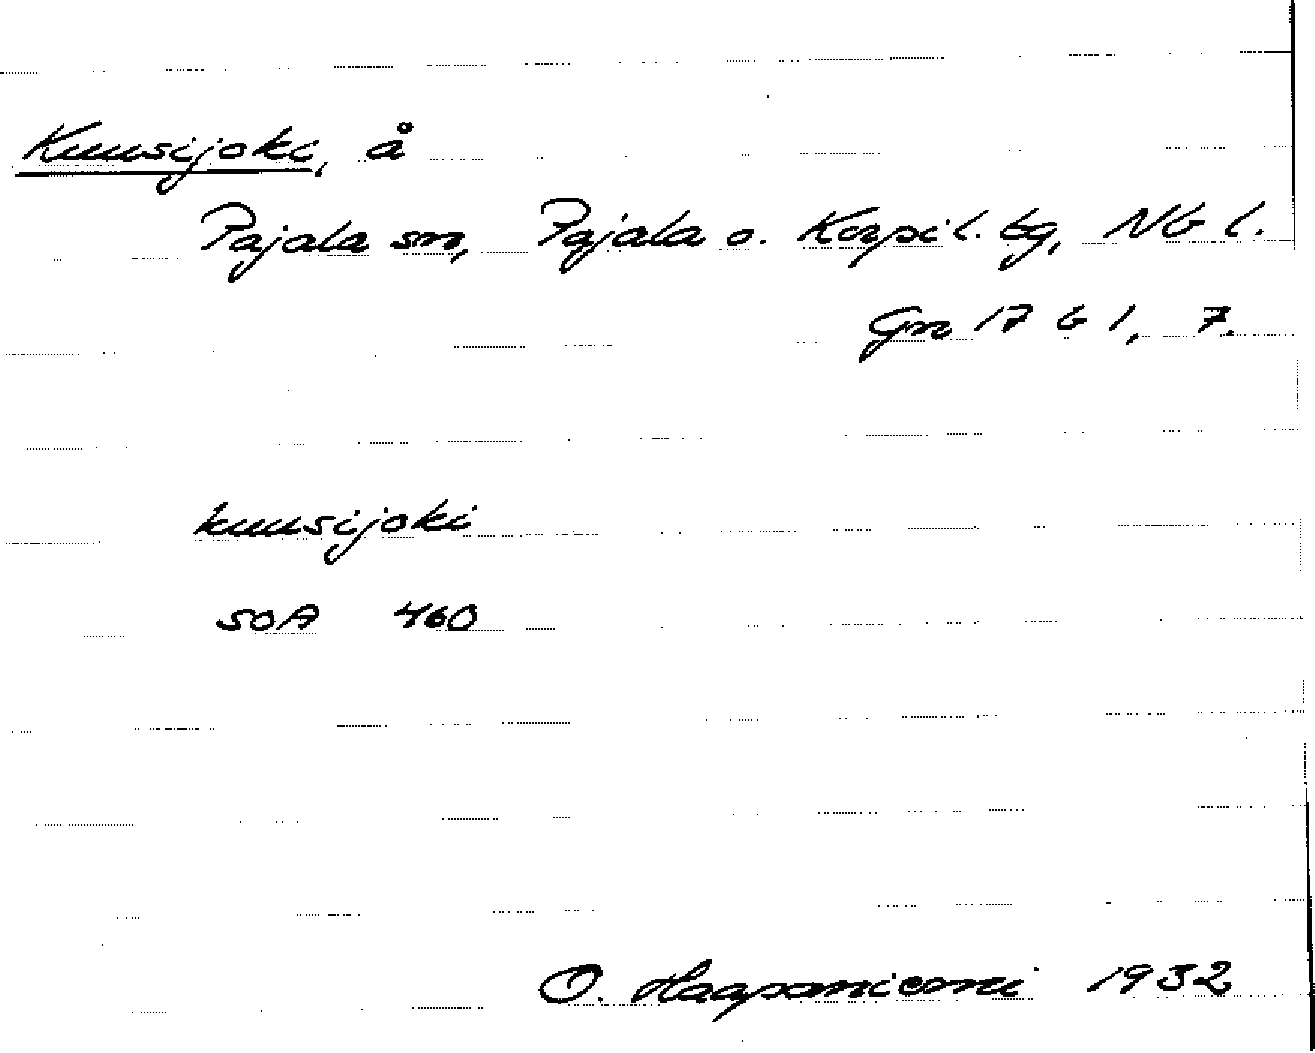 Kuusijoki, å
Pajala sn, Pajala o. Korpil. tg, Nb l.
Gn 17 b 1, 7.
kuusijoki
SOA 460
O. Haapaniemi 1932